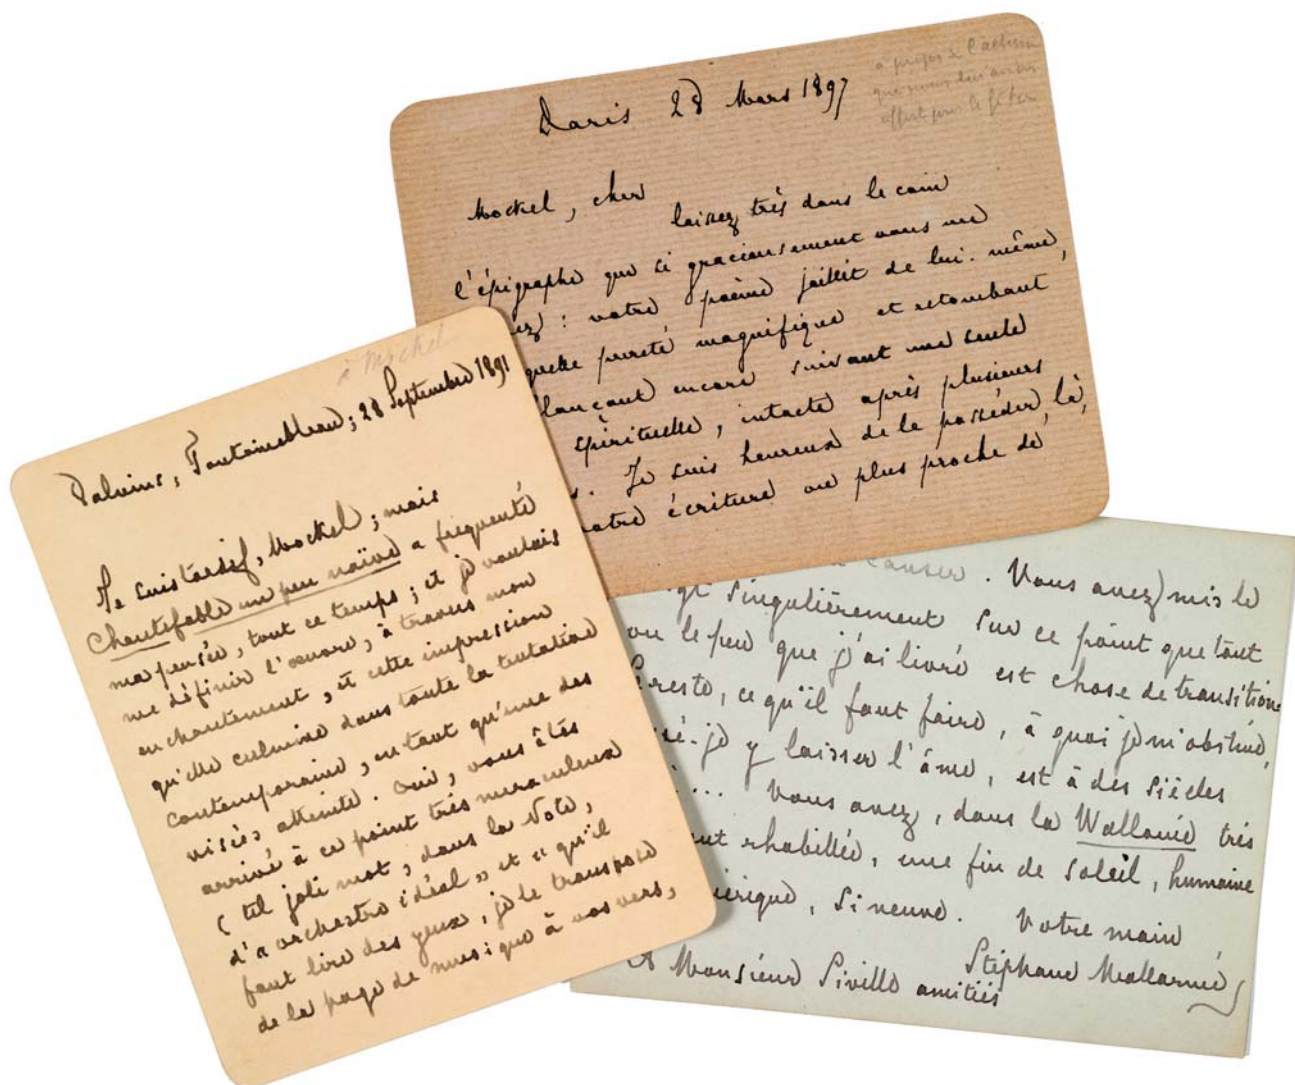 Paris 28 Mars 1897
à propos de l'album
que nous lui avons
offert pour le fêter
Mockel, cher
laissez très dans le coin
l'épigraphe que si gracieusement vous me
ez : votre poème jaillit de lui-même,
quelle pureté magnifique et retombant
lançant encore suivant une seule
spirituelle, intacte après plusieurs
s. Je suis heureux de le posséder, là,
votre écriture ou plus proche de
à Mockel
Valvins, Fontainebleau; 28 Septembre 1891
Je suis tardif, Mockel; mais
Chantefable un peu naïve a fréquenté
ma pensée, tout ce temps; et je voulais
me définir l'œuvre, à travers mon
enchantement, et cette impression
qu'elle culmine dans toute la tentative
contemporaine, en tant qu'une des
visées atteinte. Oui, vous êtes
arrivé à ce point très miraculeux
( tel joli mot, dans la Note,
d'« orchestre idéal » et « qu'il
faut lire des yeux, je le transpose
de la page de musique à vos vers,
causer. Vous avez mis le
igt singulièrement sur ce point que tout
ou le peu que j'ai livré est chose de transition
reste, ce qu'il faut faire, à quoi je m'obstine,
sé-je y laisser l'âme, est à des siècles
... Vous avez, dans la Wallonie très
ent rhabillée, une fin de soleil, humaine
érique, si neuve. Votre main
Stéphane Mallarmé
A Monsieur Siville amitiés